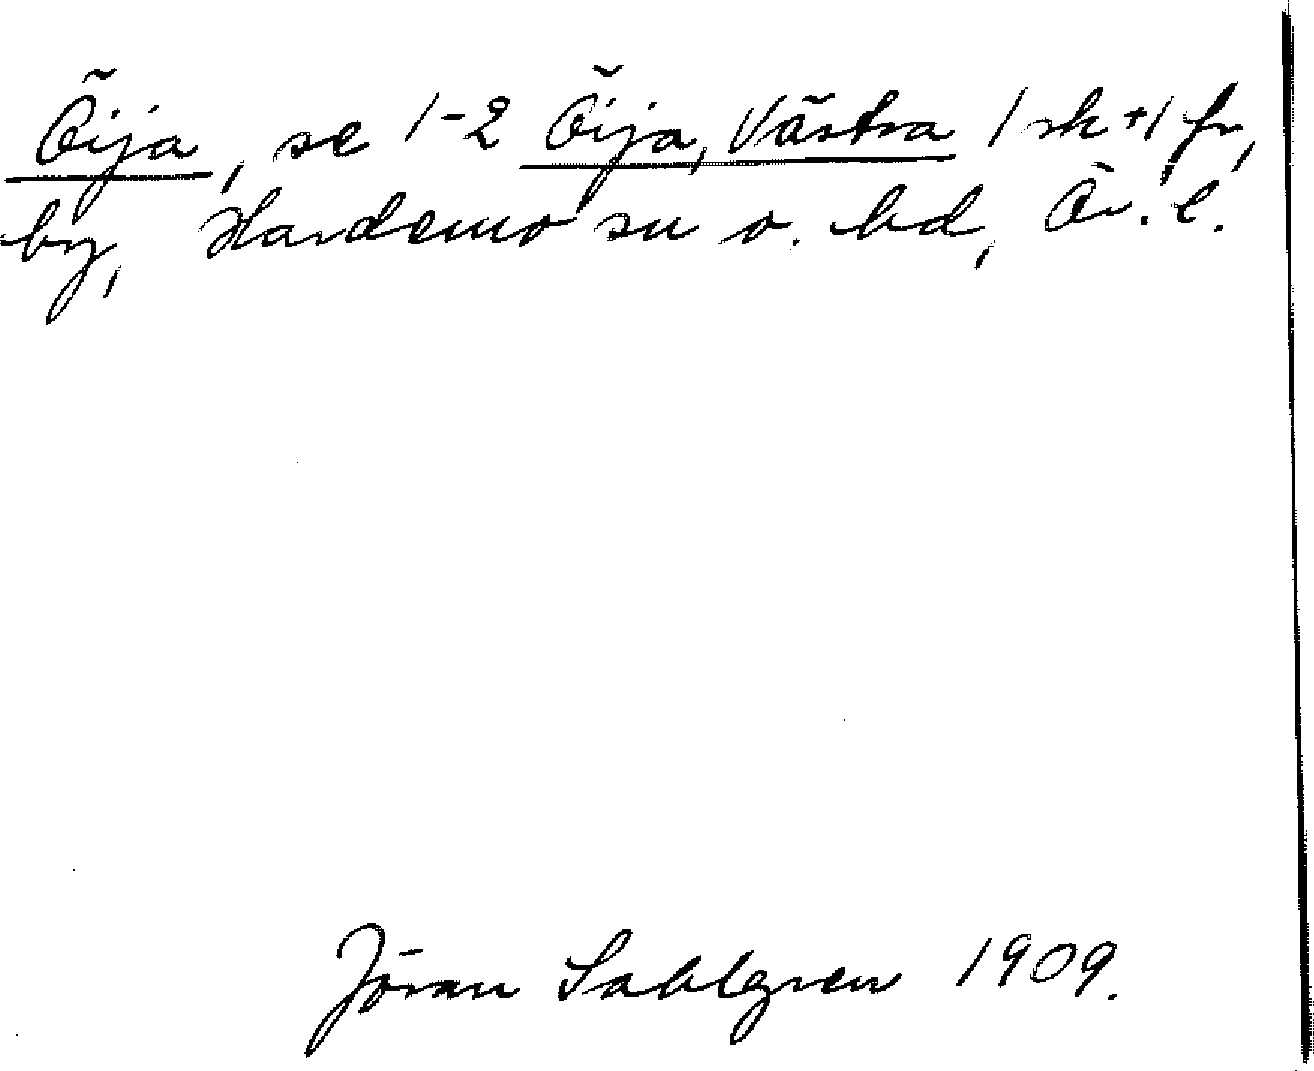 Öija, se 1-2 Öija, Västra 1 sk + 1 fr,
by, Hardemo sn o. hd, Ör. l.
Jöran Sahlgren 1909.